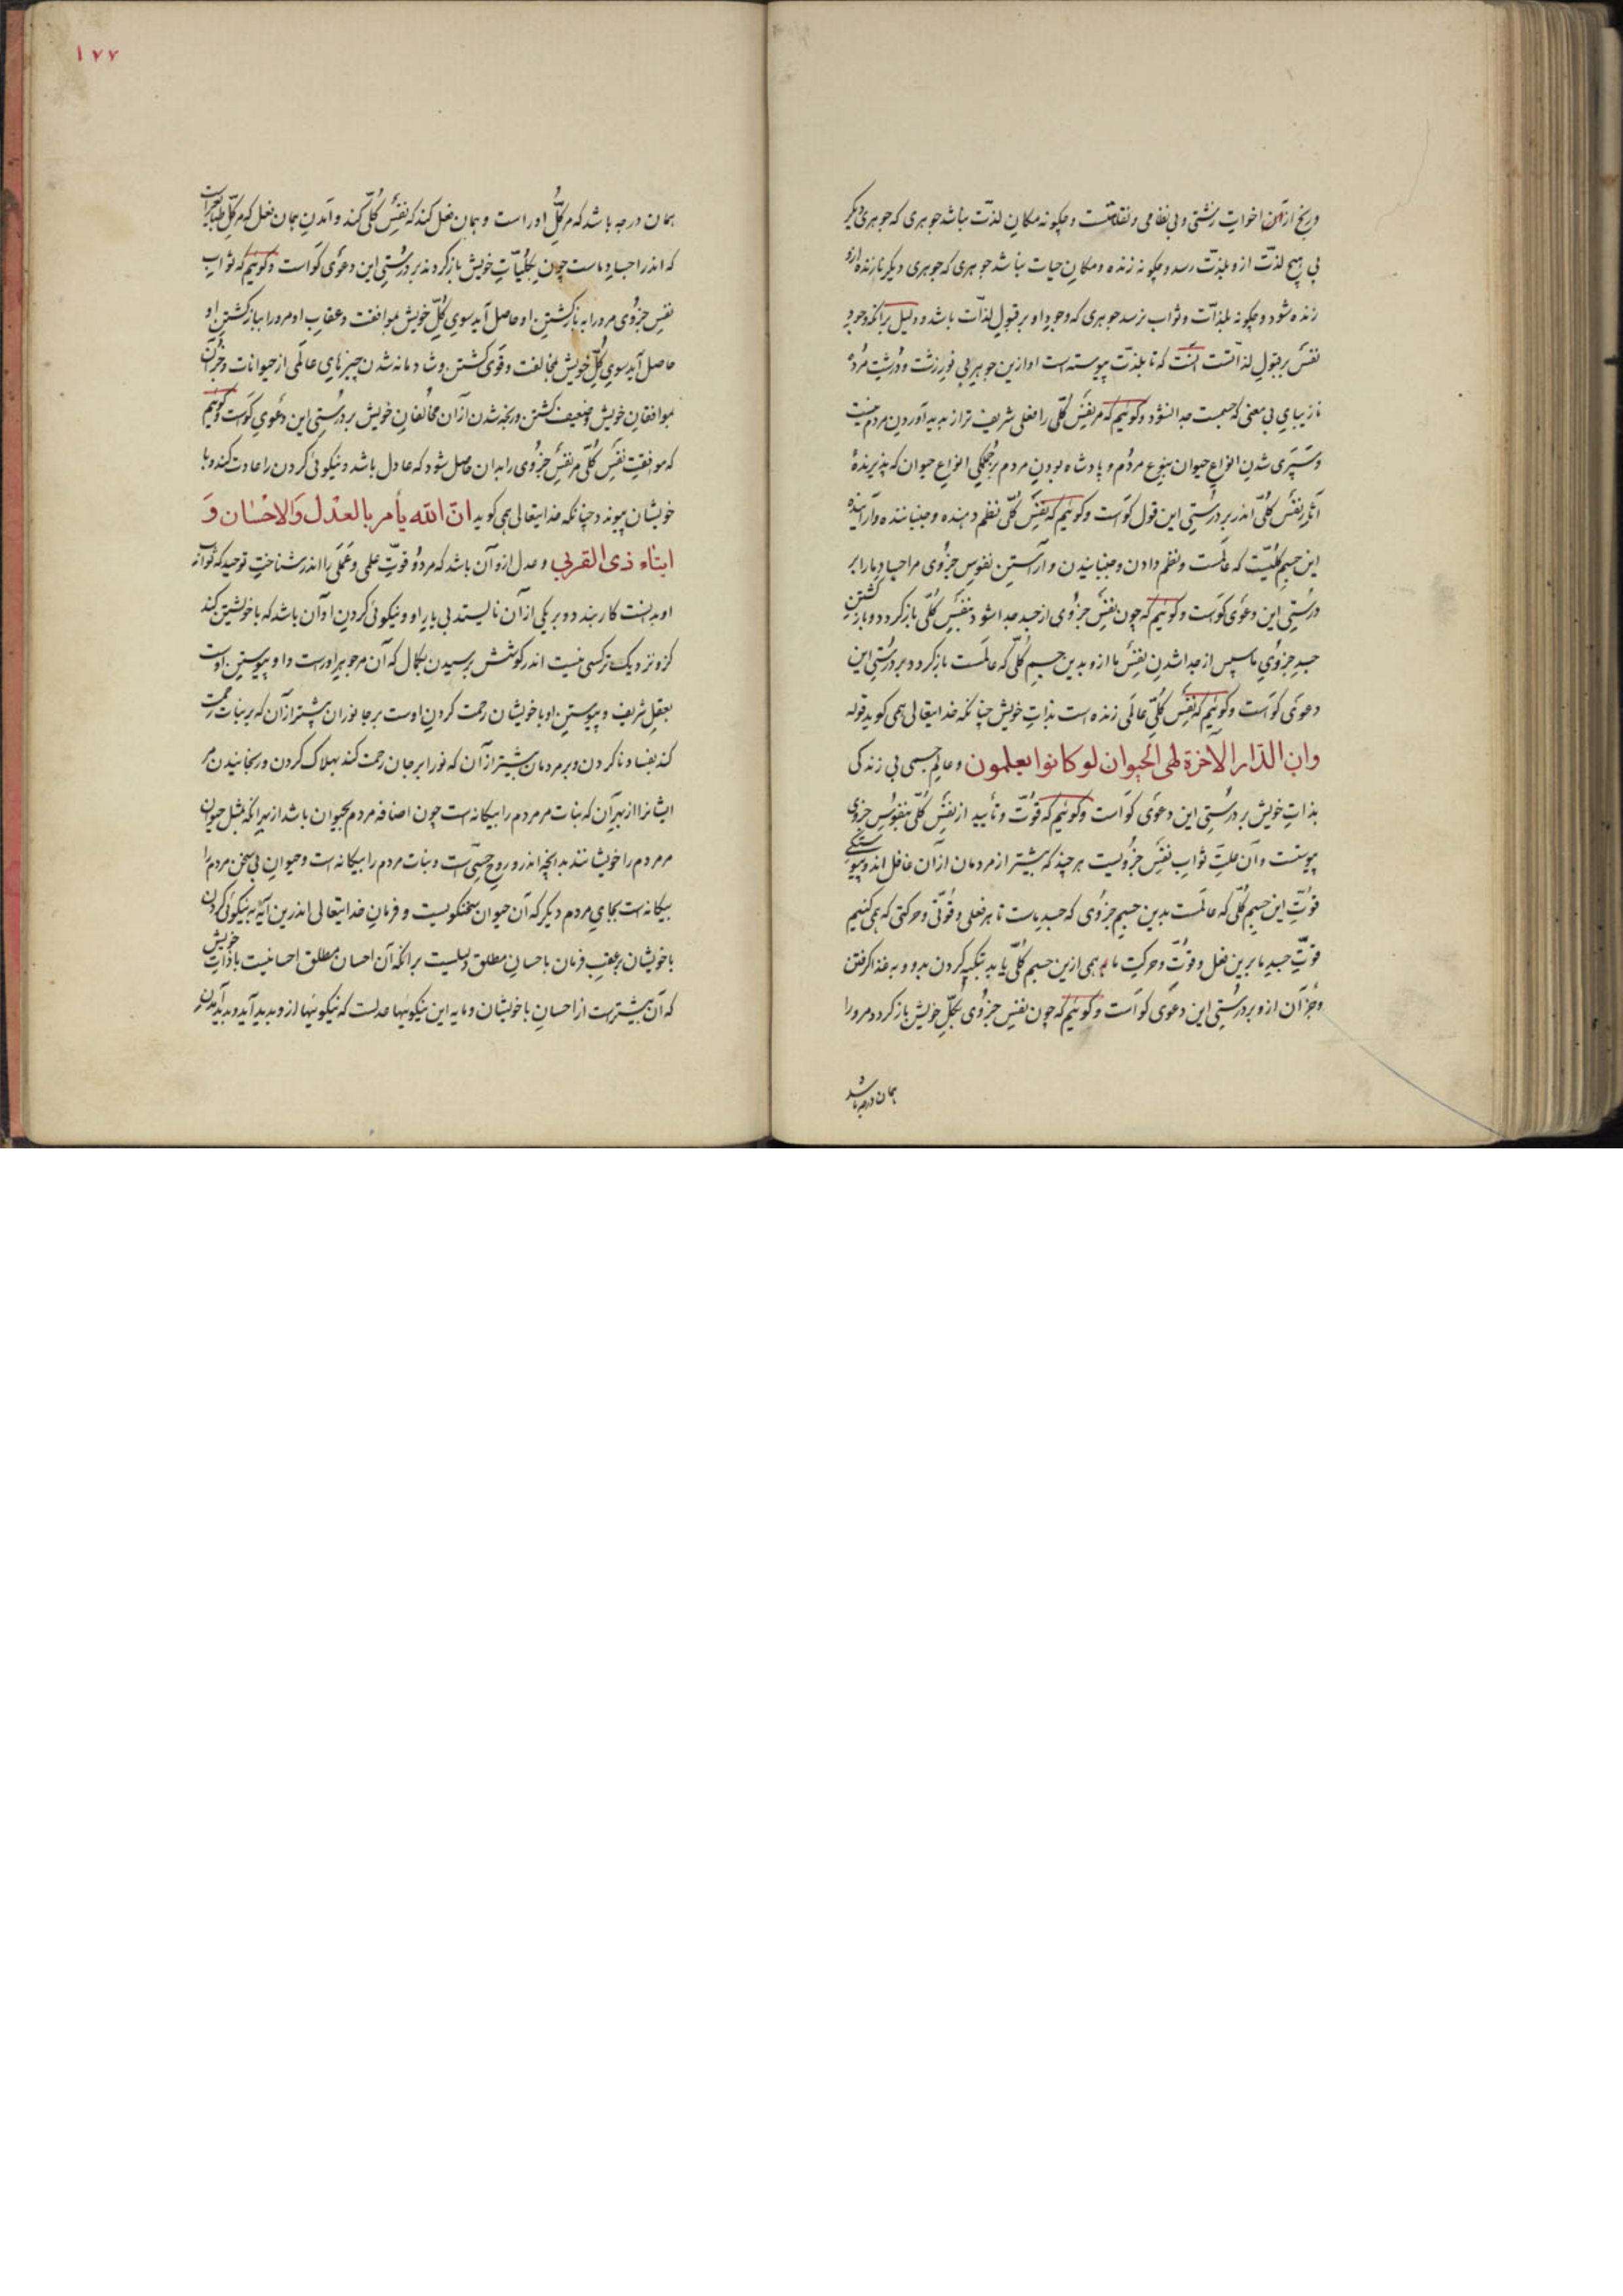 و رنج از آن اخوات زشتی و بی نظامی و نقایتست و چگونه مکان لذّت نباشد جوهری که جوهری دیگر
بی هیچ لذّت ازو بلذّت رسد و چگونه زنده و مکان حیات نباشد جوهری که جوهری دیگر نا زنده ازو
زنده شود و چگونه بلذّات و ثواب نرسد جوهری که وجود او بر قبول لذّات باشد و دلیل بر آنکه وجود
نفس بر قبول لذّاتست آنست که تا بلذّت پیوسته است او ازین جوهر بی نور زشت و درشت مرده
نازیبای بی معنی که جسمست جدا نشود و گوئیم که مر نفس کلّی را فعلی شریف تر از پدید آوردن مردم نیست
و سپری شدن انواع حیوان بنوع مردم و پادشاه بودن مردم بر جملگی انواع حیوان که پذیرندهٔ
آثار نفس کلّی اندر بر درستی این قول گواست و گوئیم که نفس کلّی نظم دهنده و جنباننده و آراینده
این جسم کلیّست که عالمست و نظم دادن و جنبانیدن و آراستن نفوس جزوی مر اجساد ما را بر
درستی این دعوی گواست و گوئیم که چون نفس جزوی از جسد جدا شود بنفس کلّی باز گردد و باز گشتن
جسد جزوی ما سپس از جدا شدن نفس ما ازو بدین جسم کلّی که عالمست باز گردد و بر درستی این
دعوی گواست و گوئیم که نفس کلّی عالمی زنده است بذات خویش چنانکه خدایتعالی همی گوید قوله
وان الدّار الآخرة لهی الحیوان لو کانوا یعلمون و عالم جسمی بی زندگی
بذات خویش بر درستی این دعوی گواست و گوئیم که قوّت و تأیید از نفس کلّی بنفوس جزوی
پیوستست و آن علّت ثواب نفس جزویست هر چند که بیشتر از مردمان از آن غافل اند و پیوستگی
قوّت این جسم کلّی که عالمست بدین جسم جزوی که جسد ماست تا هر فعلی و قوّتی و حرکتی که همی کنیم
قوّت جسد ما برین فعل و قوّت و حرکت ما را همی ازین جسم کلّی یابد بتکیه کردن بدو و به غذا گرفتن
و جز آن ازو بر درستی این دعوی گواست و گوئیم که چون نفس جزوی بکلّ خویش باز گردد مرورا
همان درجه باشد
۱۷۷
همان درجه باشد که مر کلّ او راست و همان فعل کند که نفس کلّی کند و آمدن همان فعل که مر کلّ طبایع راست
که اندر اجساد ماست چون بکلّیّات خویش باز گردند بر درستی این دعوی گواست و گوئیم که ثواب
نفس جزوی مرورا به باز گشتن او حاصل آید سوی کلّ خویش بموافقت و عقاب او مرورا بباز گشتن او
حاصل آید سوی کلّ خویش بمخالفت و قوی گشتن و شادمانه شدن چیزهای عالمی از حیوانات و جز آن
بموافقان خویش و ضعیف گشتن و رنجه شدن از آن مخالفان خویش بر درستی این دعوی گواست و گوئیم
که موافقت نفس کلّی مر نفس جزوی را بدان حاصل شود که عادل باشد و نیکوئی کردن را عادت کند و با
خویشان پیوندد چنانکه خدایتعالی همی گوید انّ الله یأمر بالعدل والاحسان وَ
ایتاء ذی القربی و عدل ازو آن باشد که مر دو قوّت علمی و عملی را اندر شناخت توحید که ثواب از
او بدانست کار بندد و بر یکی از آن نایستد بی یار او و نیکوئی کردن او آن باشد که با خویشتن کند
کزو نزدیک تر کسی نیست اندر کوشش برسیدن بکمال که آن مر جوهر اوراست و او پیوستن اوست
بعقل شریف و پیوستن او با خویشان رحمت کردن اوست بر جانوران بیشتر از آن که بر نبات رحمت
کند بفساد نا کردن و بر مردمان بیشتر از آن که نورا بر جان رحمت کند بهلاک کردن و رنجانیدن مر
ایشانرا از بهر آن که نبات مر مردم را بیگانه است چون اضافه مردم بحیوان باشد از بهر آنکه مثل حیوان
مر مردم را خویشانند بدانچه اندرو روح حسّی است و نبات مردم را بیگانه است و حیوان بی سخن مردم را
بیگانه است بجای مردم دیگر که آن حیوان سخنگویست و فرمان خدایتعالی اندرین آیه به نیکوئی کردن
با خویشان بر عقب فرمان باحسان مطلق دلیلست بر آنکه آن احسان مطلق احسانیست با ذات خویش
که آن بیشترست از احسان با خویشان و مایه این نیکوئیها عدلست که نیکوئیها ازو پدید آید و پدید آمدن